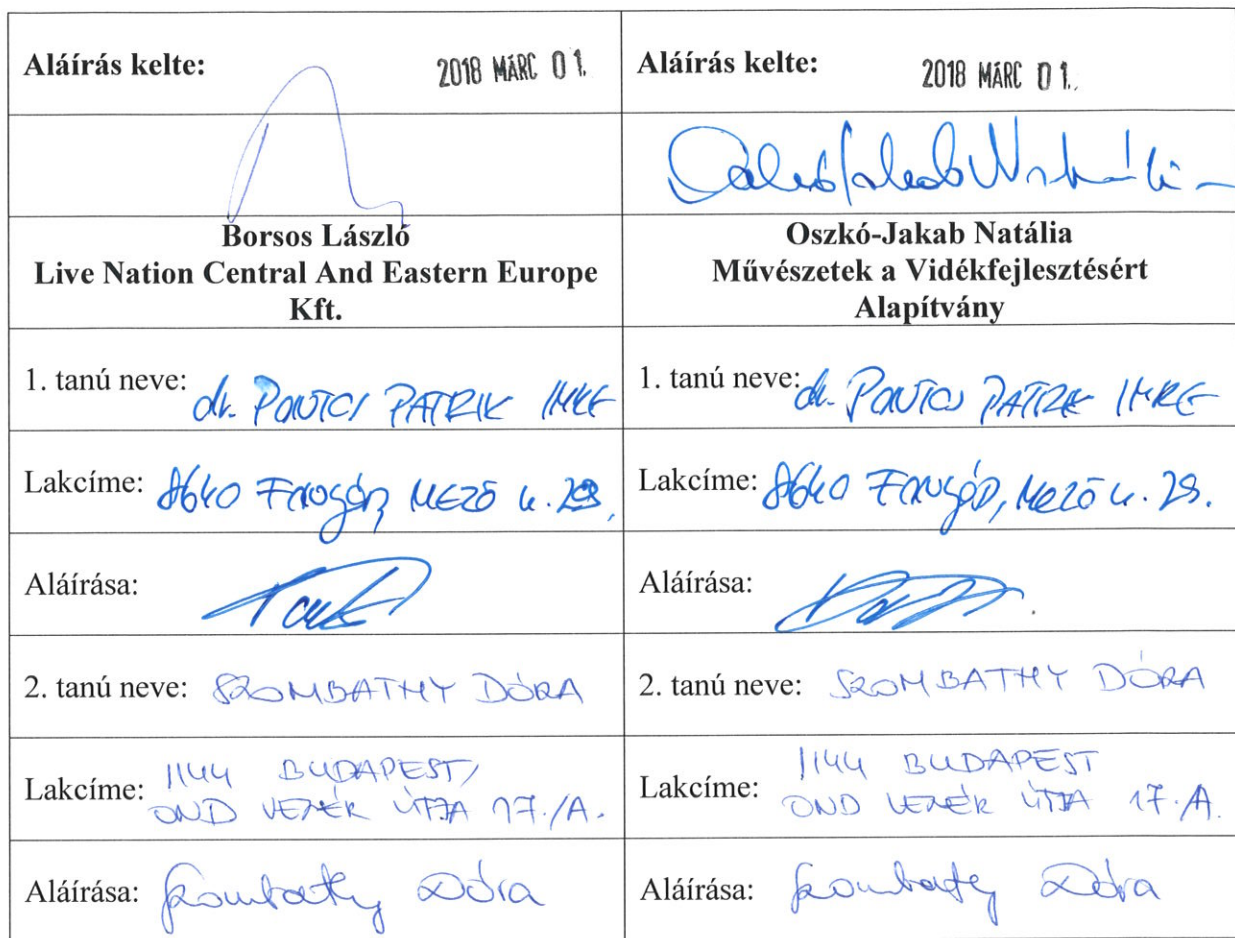 Aláírás kelte: 2018 MÁRC 01.
Aláírás kelte: 2018 MÁRC 01.
Borsos László
Live Nation Central And Eastern Europe
Kft.
Oszkó-Jakab Natália
Művészetek a Vidékfejlesztésért
Alapítvány
1. tanú neve: dr. PATRIK IMRE
1. tanú neve: dr. PATRIK IMRE
Lakcíme: 8640 MEZŐ u.
Lakcíme: 8640 MEZŐ u.
Aláírása:
Aláírása:
2. tanú neve: SZOMBATHY DÓRA
2. tanú neve: SZOMBATHY DÓRA
Lakcíme: 1144 BUDAPEST,
OND VEZÉR ÚTJA 17./A.
Lakcíme: 1144 BUDAPEST
OND VEZÉR ÚTJA 17./A.
Aláírása: Szombathy Dóra
Aláírása: Szombathy Dóra